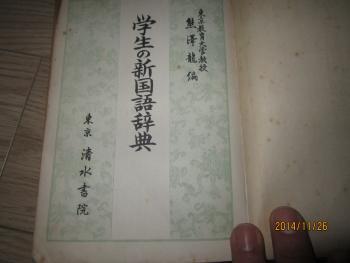 東京教育大学教授
熊澤龍編
学生の新国語辞典
東京 清水書院
2014/11/26